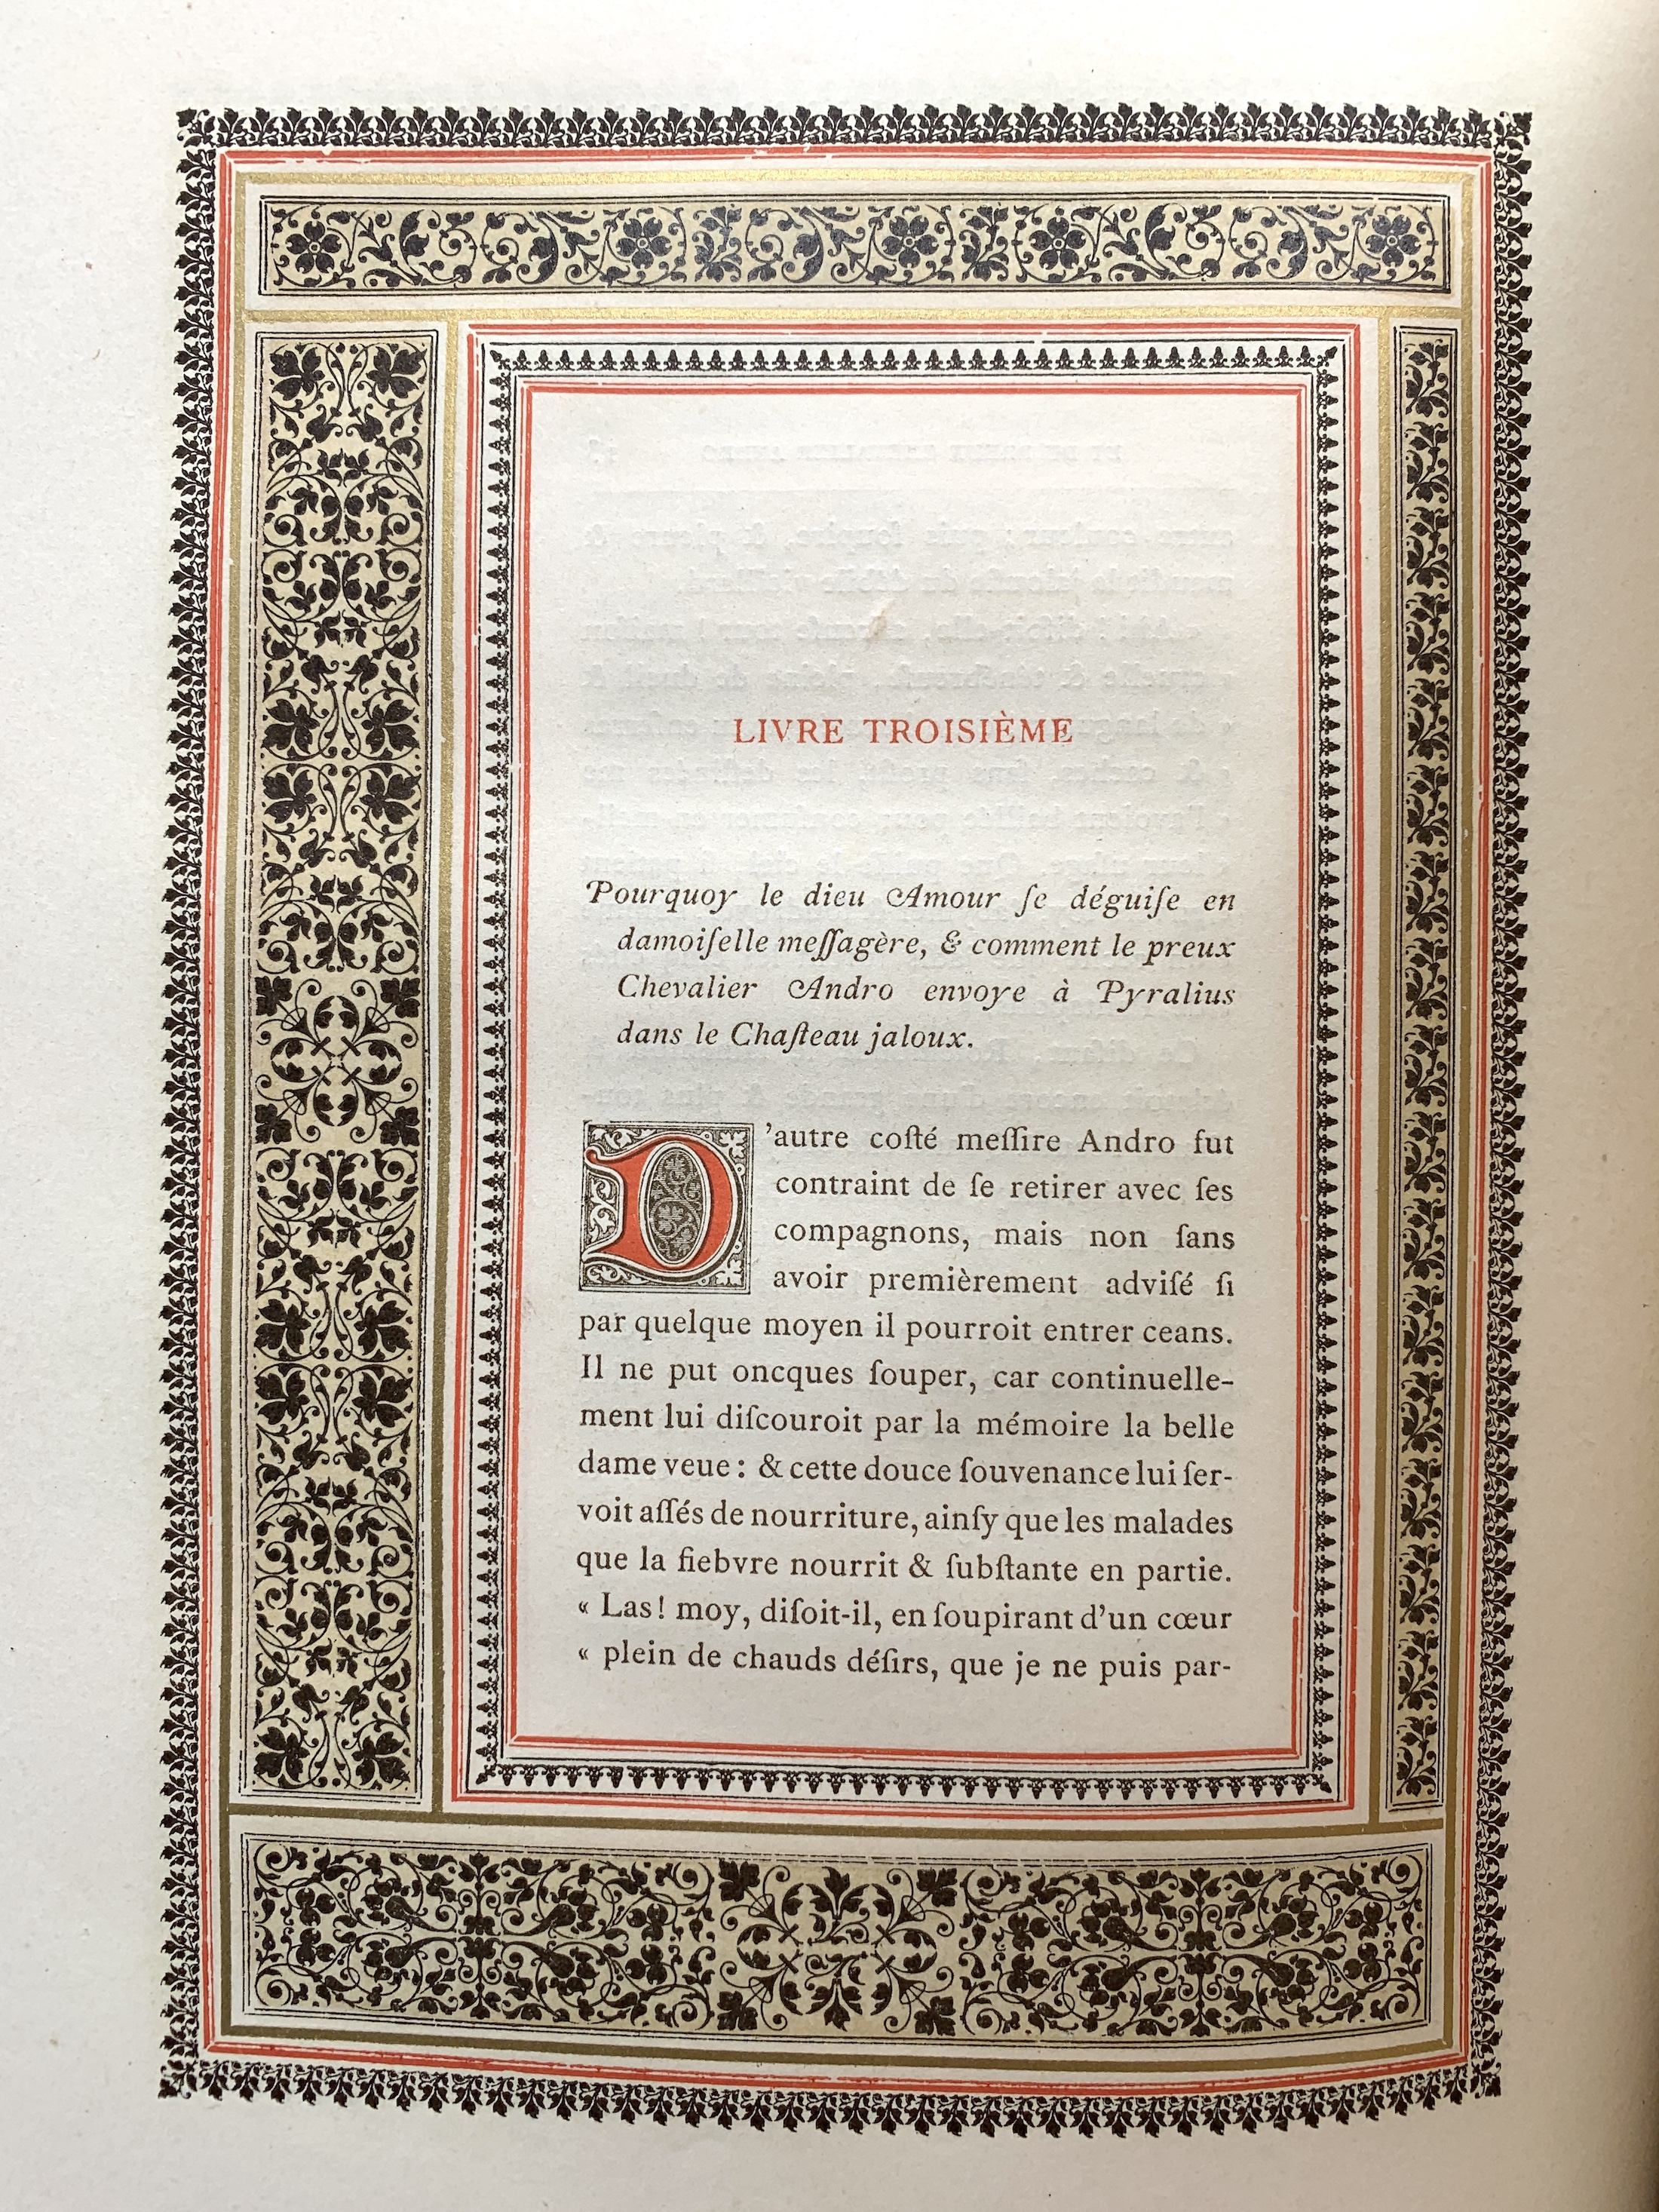 LIVRE TROISIÈME
Pourquoy le dieu Amour ſe déguiſe en
damoiſelle meſſagère, & comment le preux
Chevalier Andro envoye à Pyralius
dans le Chaſteau jaloux.
D'autre coſté meſſire Andro fut
contraint de ſe retirer avec ſes
compagnons, mais non ſans
avoir premièrement adviſé ſi
par quelque moyen il pourroit entrer ceans.
Il ne put oncques ſouper, car continuelle-
ment lui diſcouroit par la mémoire la belle
dame veue : & cette douce ſouvenance lui ſer-
voit aſſés de nourriture, ainſy que les malades
que la fiebvre nourrit & ſubſtante en partie.
« Las! moy, diſoit-il, en ſoupirant d'un cœur
« plein de chauds déſirs, que je ne puis par-